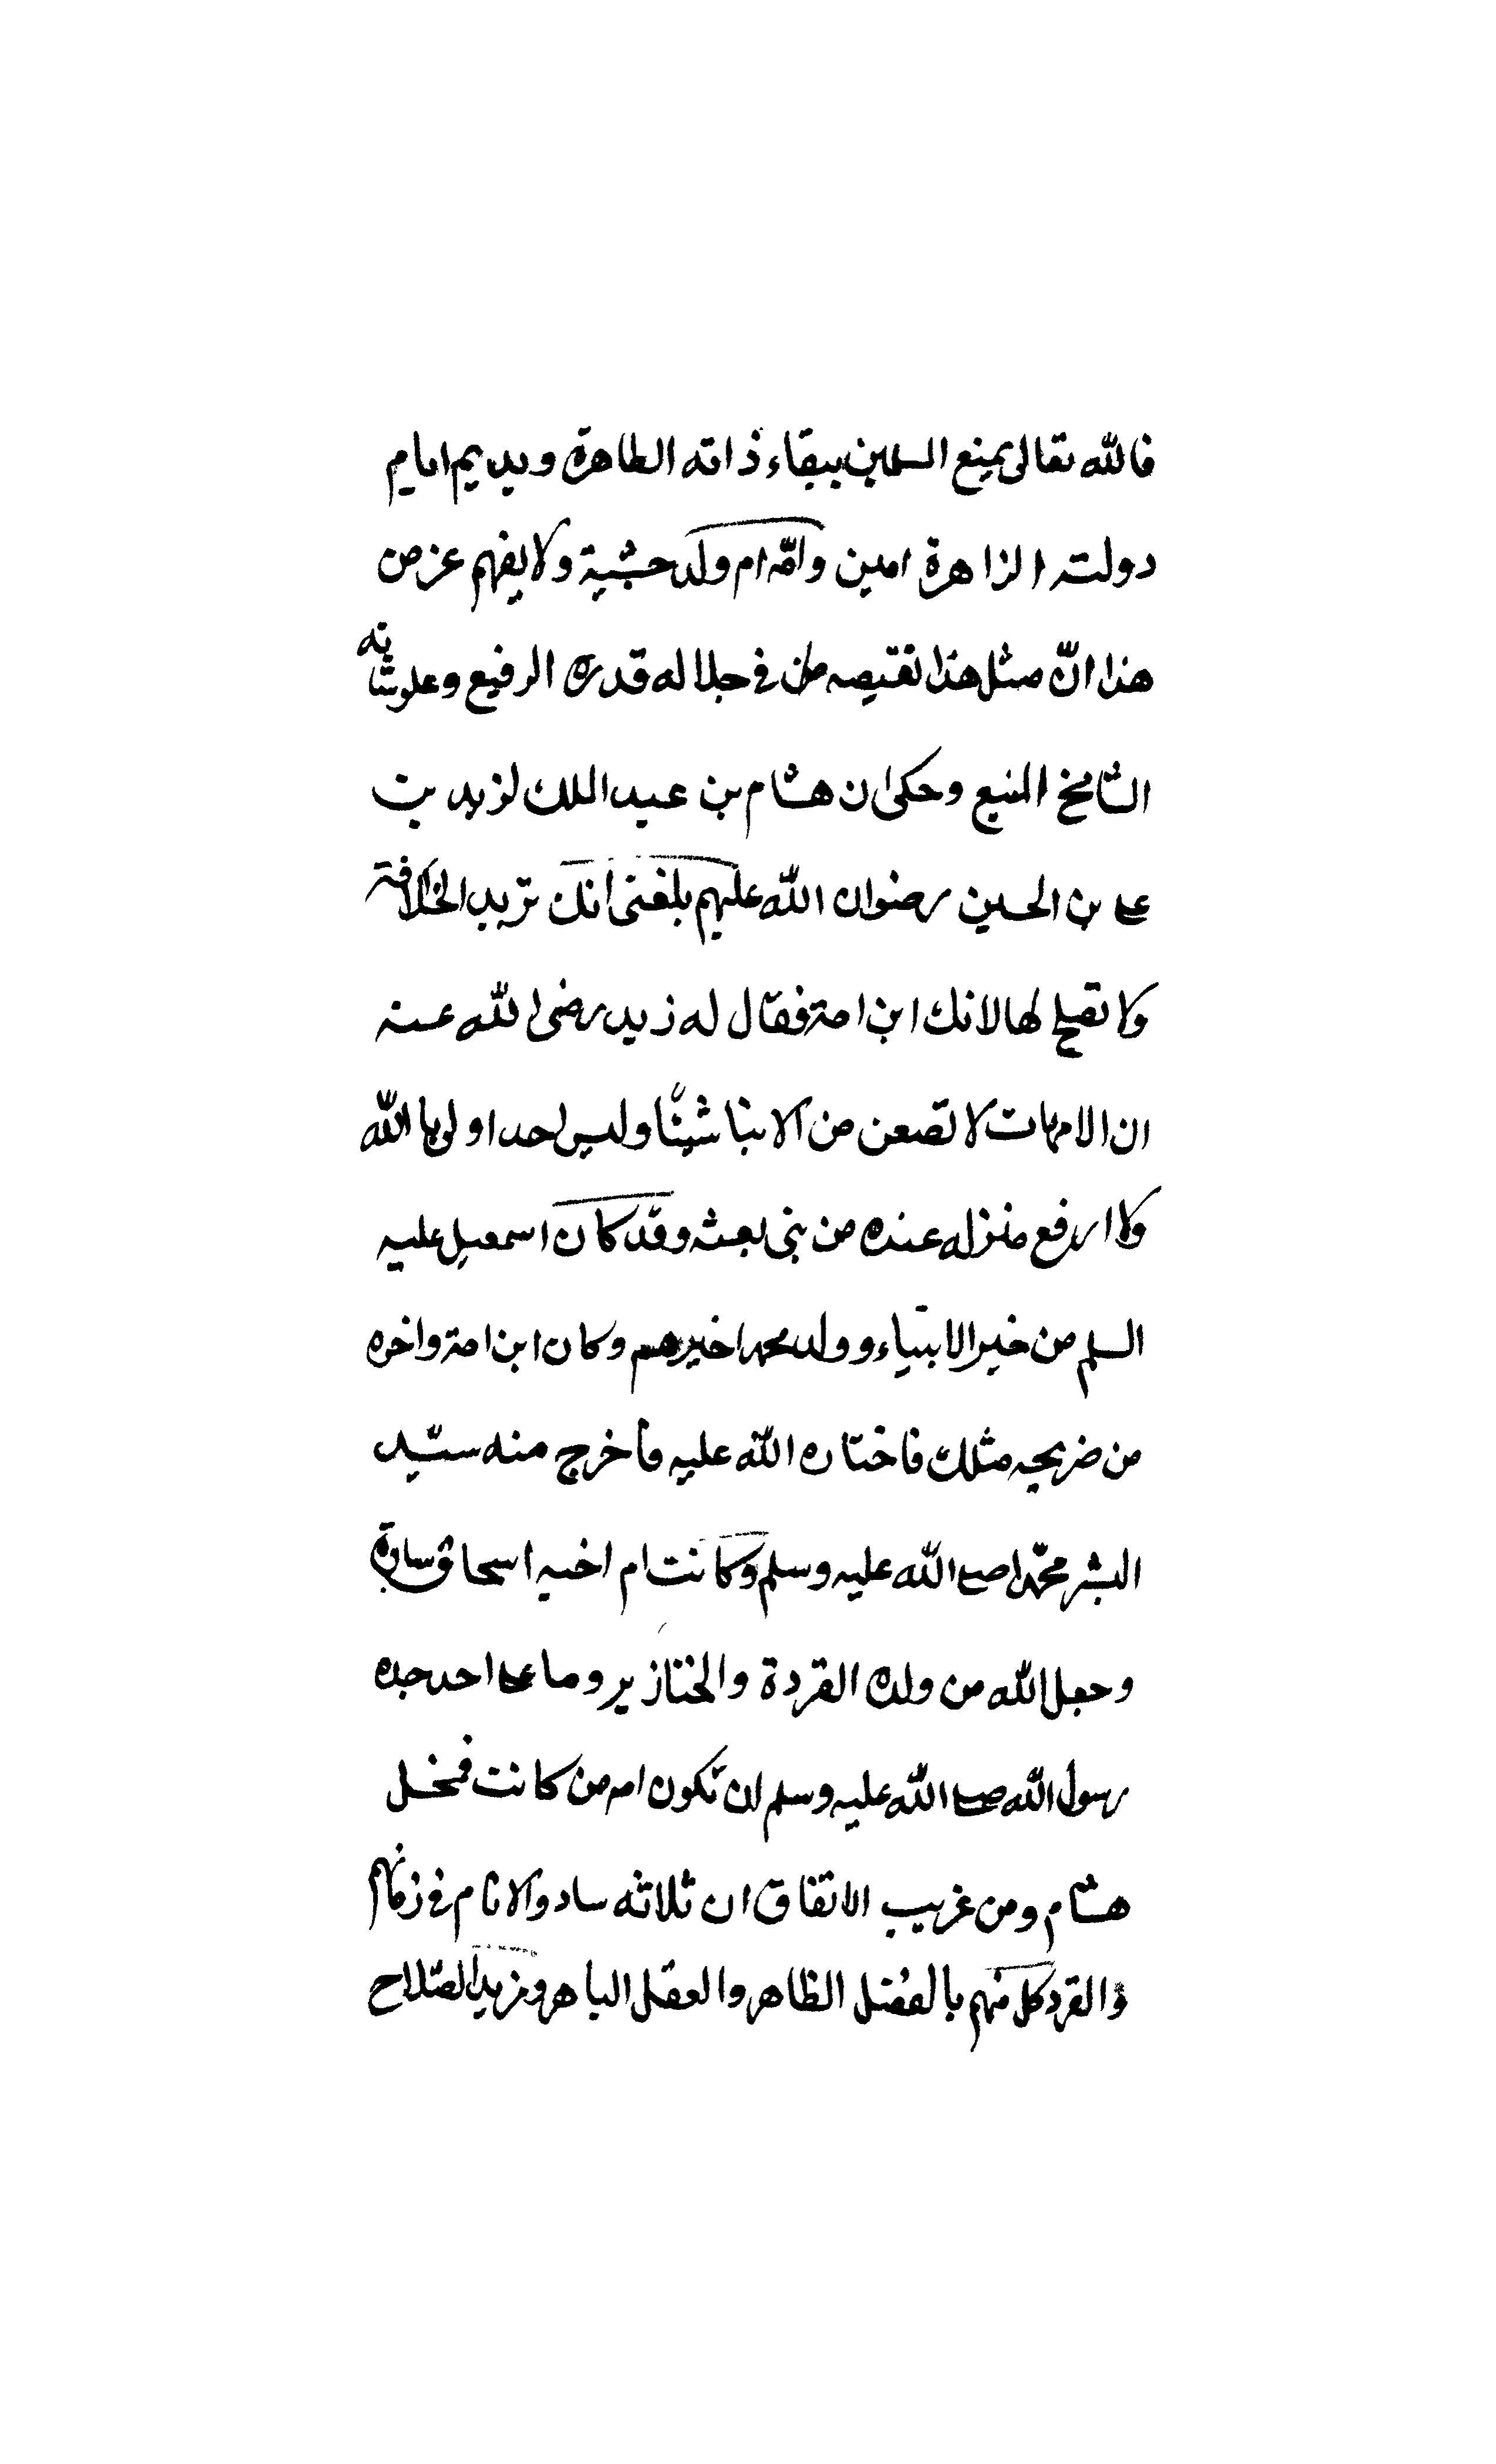 فالله تعالى يمنع المسلمين ببقاء ذاته الطاهرة ويديم ايام
دولته الزاهرة امين وامّه ام ولد حبشية ولا يفهم غر من
هذا انّ مثل هذا نقيصه طن في جلاله قدره الرفيع وعلو شانه
الشامخ المنيع وحكى ان هشام بن عبد الملك لزيد بن
على بن الحسين رضوان الله عليهم بلغنى أنك تريد الخلافة
ولا تصلح لها لانك ابن امة فقال له زيد رضى الله عنه
ان الامهات لا تضعن من الابنا شيئًا وليس احد اولى بالله
ولا ارفع منزله عنده من بنى بعثه وقد كان اسمعيل عليه
السلم من خير الانبياء وولد محمدا خيرهم وكان ابن امة واخوه
من ضريحه مثلك فاختاره الله عليه فأخرج منه سيّد
البشر محمّدا صلى الله عليه وسلم وكانت ام اخيه اسحاق سارة
وجعل الله من ولده القردة والخنازير وما على احد جده
رسول الله صلى الله عليه وسلم ان تكون امه من كانت فخجل
هشام ومن غريب الاتفاق ان ثلاثه سادوا الانام في زمانهم
وانفرد كل منهم بالفضل الظاهر والعقل الباهر ومزيد الصّلاح